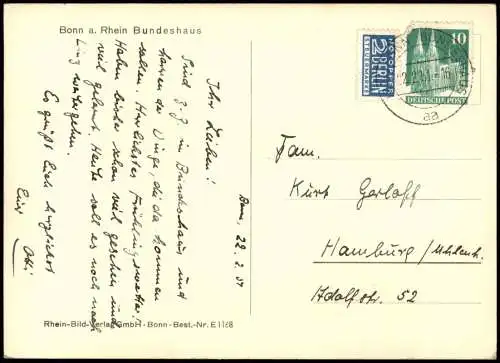 Bonn a. Rhein Bundeshaus
Bonn, 22. 2. 51
Ihr Lieben!
Sind z. Z. im Bundeshaus und
harren der Dinge, die da kommen
sollen. Herrlichstes Frühlingswetter!
Haben bisher schon viel gesehen und
viel gelernt. Heute soll es noch nach
weitergehen.
Es grüßt Euch herzlichst
Rhein-Bild-Verlag GmbH - Bonn - Best.-Nr. E 1168
NOTOPFER
2 BERLIN
STEUERMARKE
10
DEUTSCHE POST
aa
Fam.
Kurt Gerloff
Hamburg / Uhlenh.
Adolfstr. 52